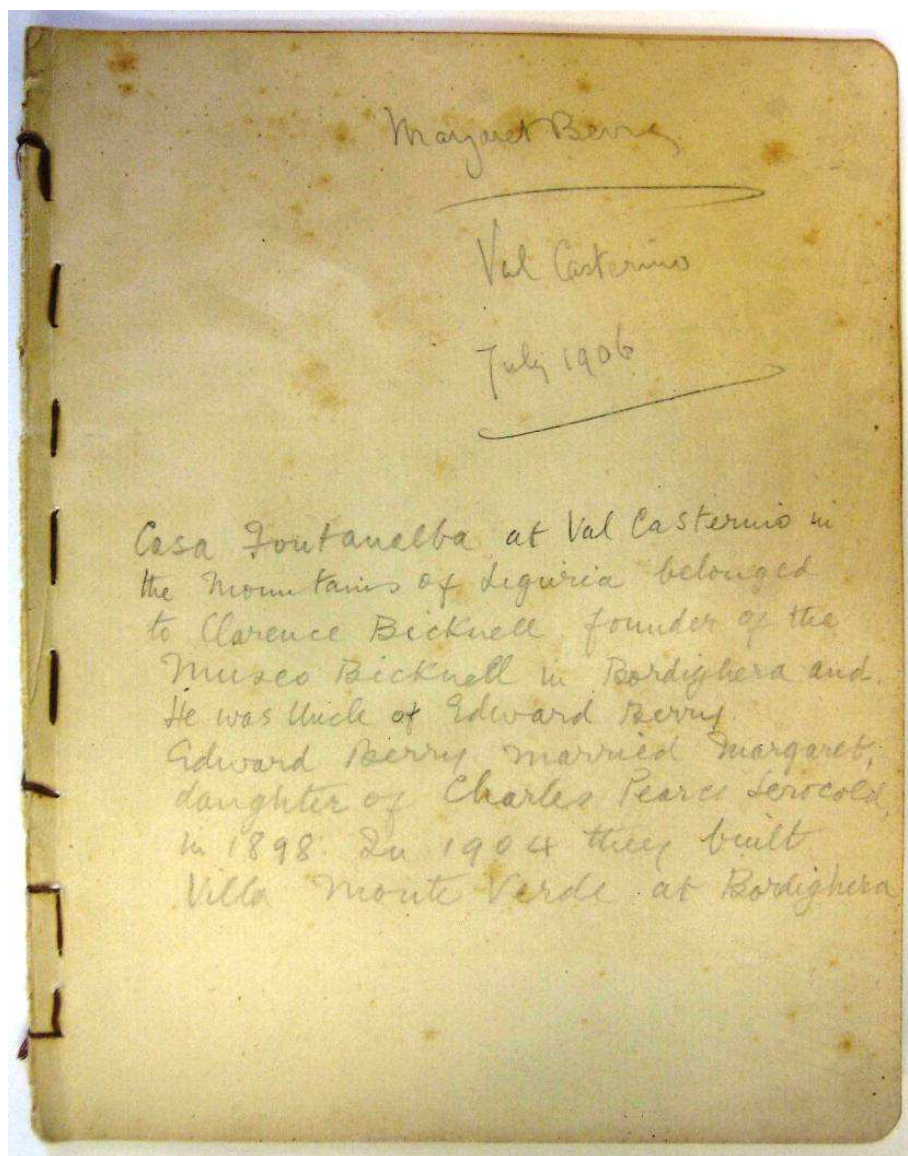 Margaret Berry
Val Casterino
July 1906
Casa Fontanalba at Val Casterino in
the Mountains of Liguria belonged
to Clarence Bicknell, founder of the
Museo Bicknell in Bordighera and.
He was Uncle of Edward Berry.
Edward Berry married Margaret,
daughter of Charles Pearce Serocold,
in 1898. In 1904 they built
Villa Monte Verde at Bordighera